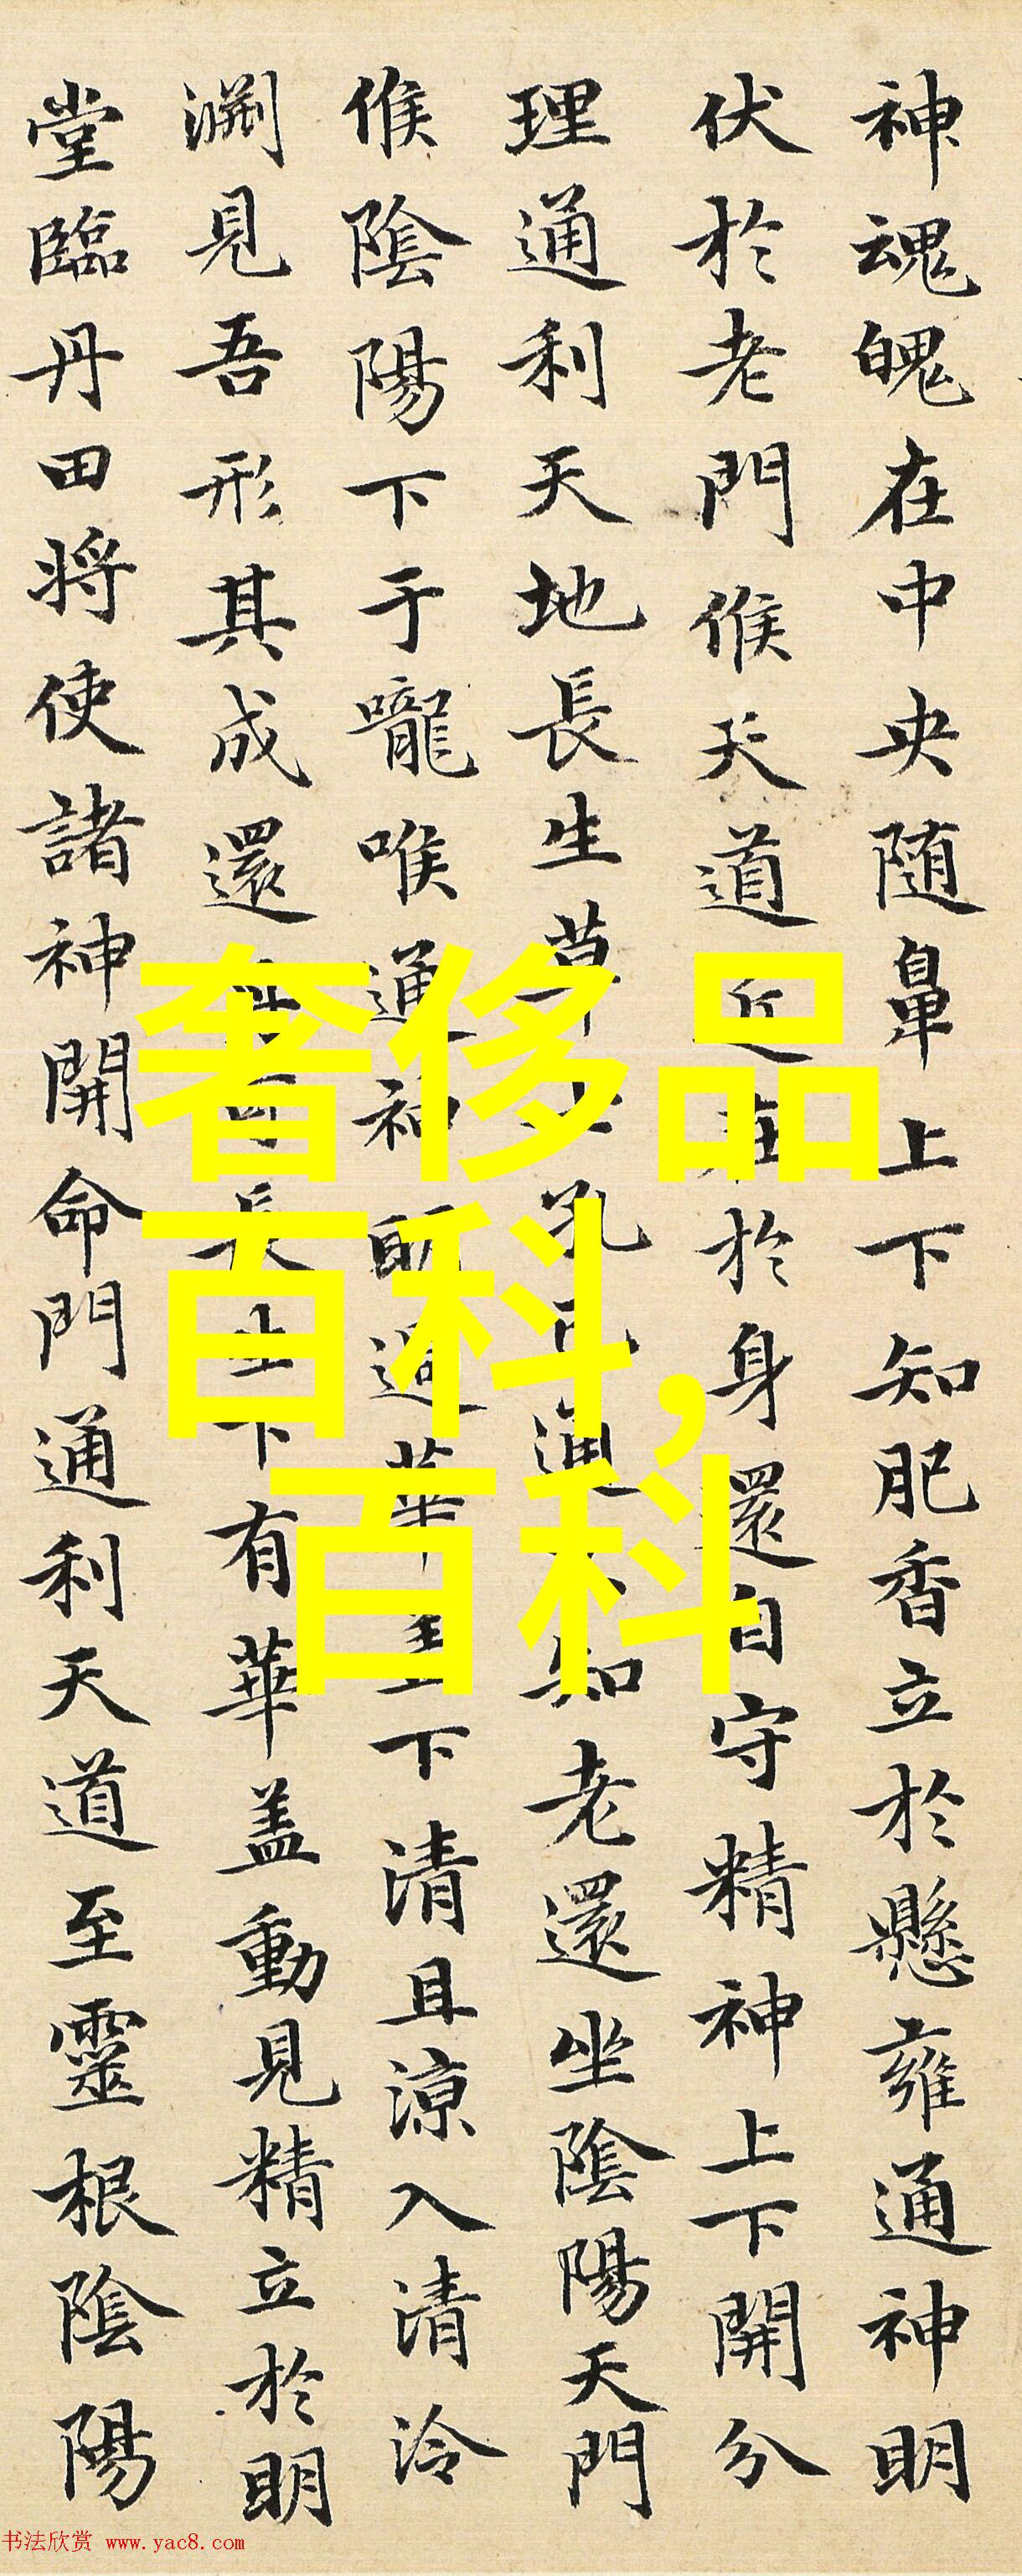 神魂魄在中央随鼻上下知肥香立於懸雍通神明
伏於老門候天道近在於身還自守精神上下開分
理通利天地長生草七孔已通不知老還坐陰陽天門
候陰陽下于嚨喉通神明過華蓋下清且涼入清泠
淵見吾形其成還可長生下有華盖動見精立於明
堂臨丹田将使諸神開命門通利天道至靈根陰陽
奢侈品
百科,
百科
书法欣赏 www.yac8.com